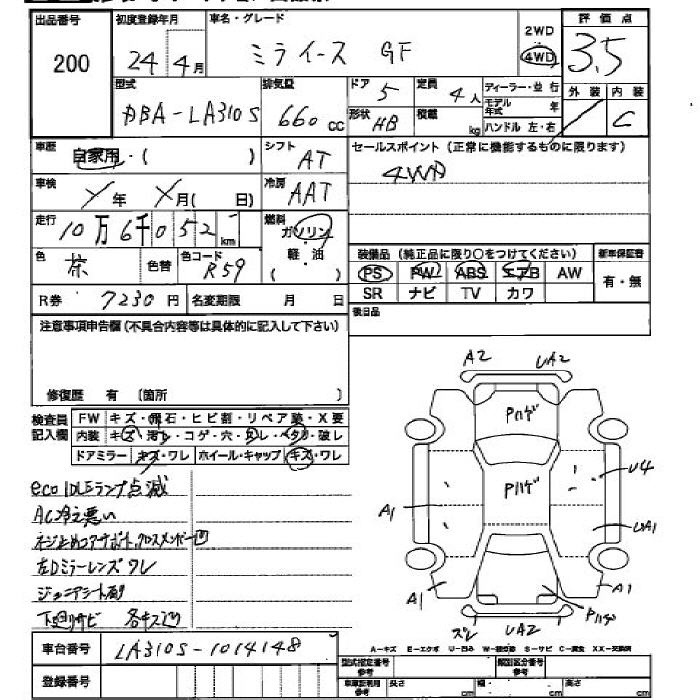 出品番号
200
初度登録年月
24年4月
車名・グレード
ミライース GF
2WD
4WD
評価点
3.5
型式
DBA-LA310S
排気量
660cc
ドア
5
形状
HB
定員
4人
積載
kg
ディーラー・並行
モデル年式 年
ハンドル 左・右
外装
内装
C
車歴
自家用・( )
シフト
AT
車検
年 月( 日)
冷房
AAC
セールスポイント(正常に機能するものに限ります)
4WD
走行
10万6千052km
燃料
ガソリン
軽・油
( )
色
茶
色替
色コード
R59
装備品(純正品に限り○をつけてください)
PS PW ABS エアB AW
SR ナビ TV カワ
新年保証書
有・無
R券 7230円
名変期限 月 日
後日品
注意事項申告欄(不具合内容等は具体的に記入して下さい)
修復歴 有 〔箇所 〕
検査員記入欄
FW キズ・飛石・ヒビ割・リペア跡・X要
内装 キズ・汚レ・コゲ・穴・スレ・ヘタリ・破レ
ドアミラー キズ・ワレ ホイール・キャップ キズ・ワレ
eco IDLEランプ点滅
AC冷え悪い
ネジ止めコアサポート、クロスメンバー凹
左Dミラーレンズワレ
下廻りサビ 各キズ
A2
UA2
Pハゲ
Pハゲ
U4
A1
UA1
A1
A1
Pハゲ
ズレ
UA2
A-キズ E-エクボ U-凹み W-補修跡 S-サビ C-腐食 XX-交換済
車台番号
LA310S-1014148
登録番号
型式指定番号
類別区分番号
参考
車庫証明用
参考
長さ cm
幅 cm
高さ cm